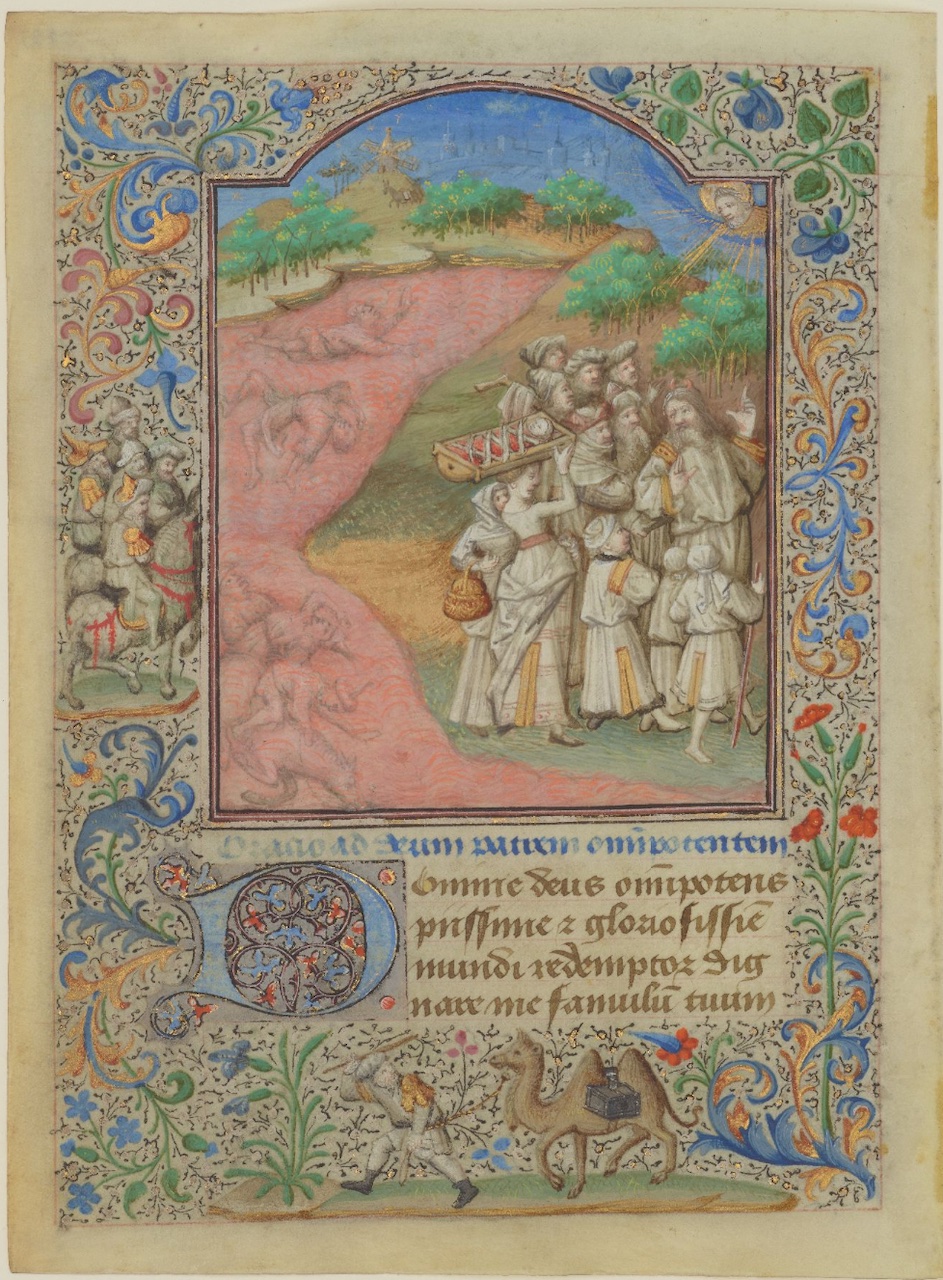 Oratio ad deum patrem om̄ipotentem
Domine deus om̄ipotens
piissime ⁊ gloriosissiē
mundi redemptor dig
nare me famulū tuum